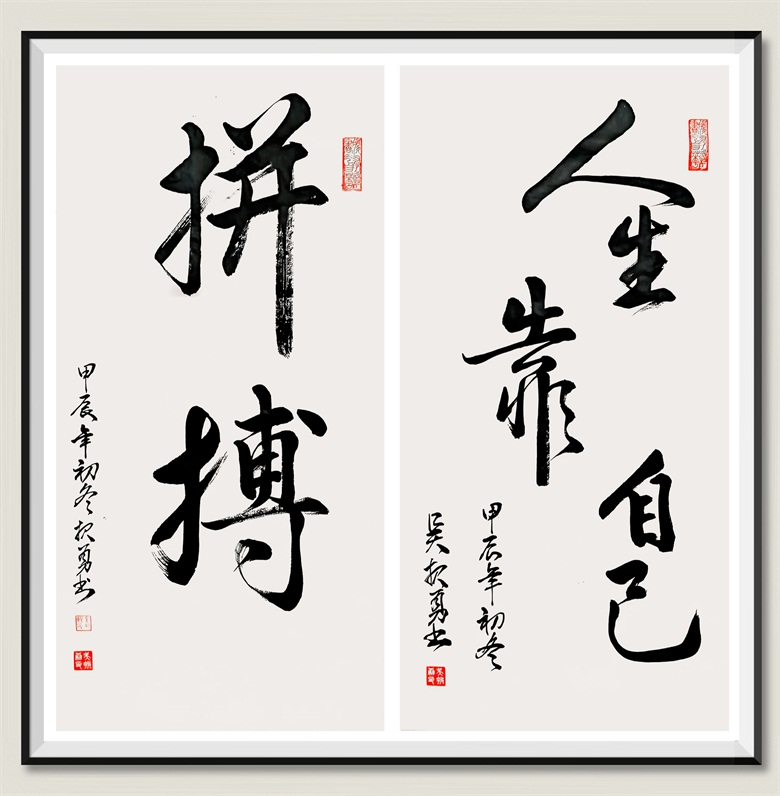 人生靠自己
甲辰年初冬
吴振勇书
拼搏
甲辰年初冬振勇书